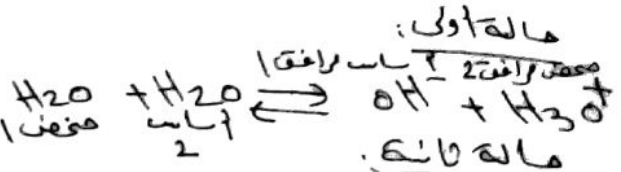 حالة أولى:
أساس مرافق 1 حمض مرافق 2
H2O + H2O ⇌ OH⁻ + H3O⁺
حمض 1 أساس 2
حالة ثانية: